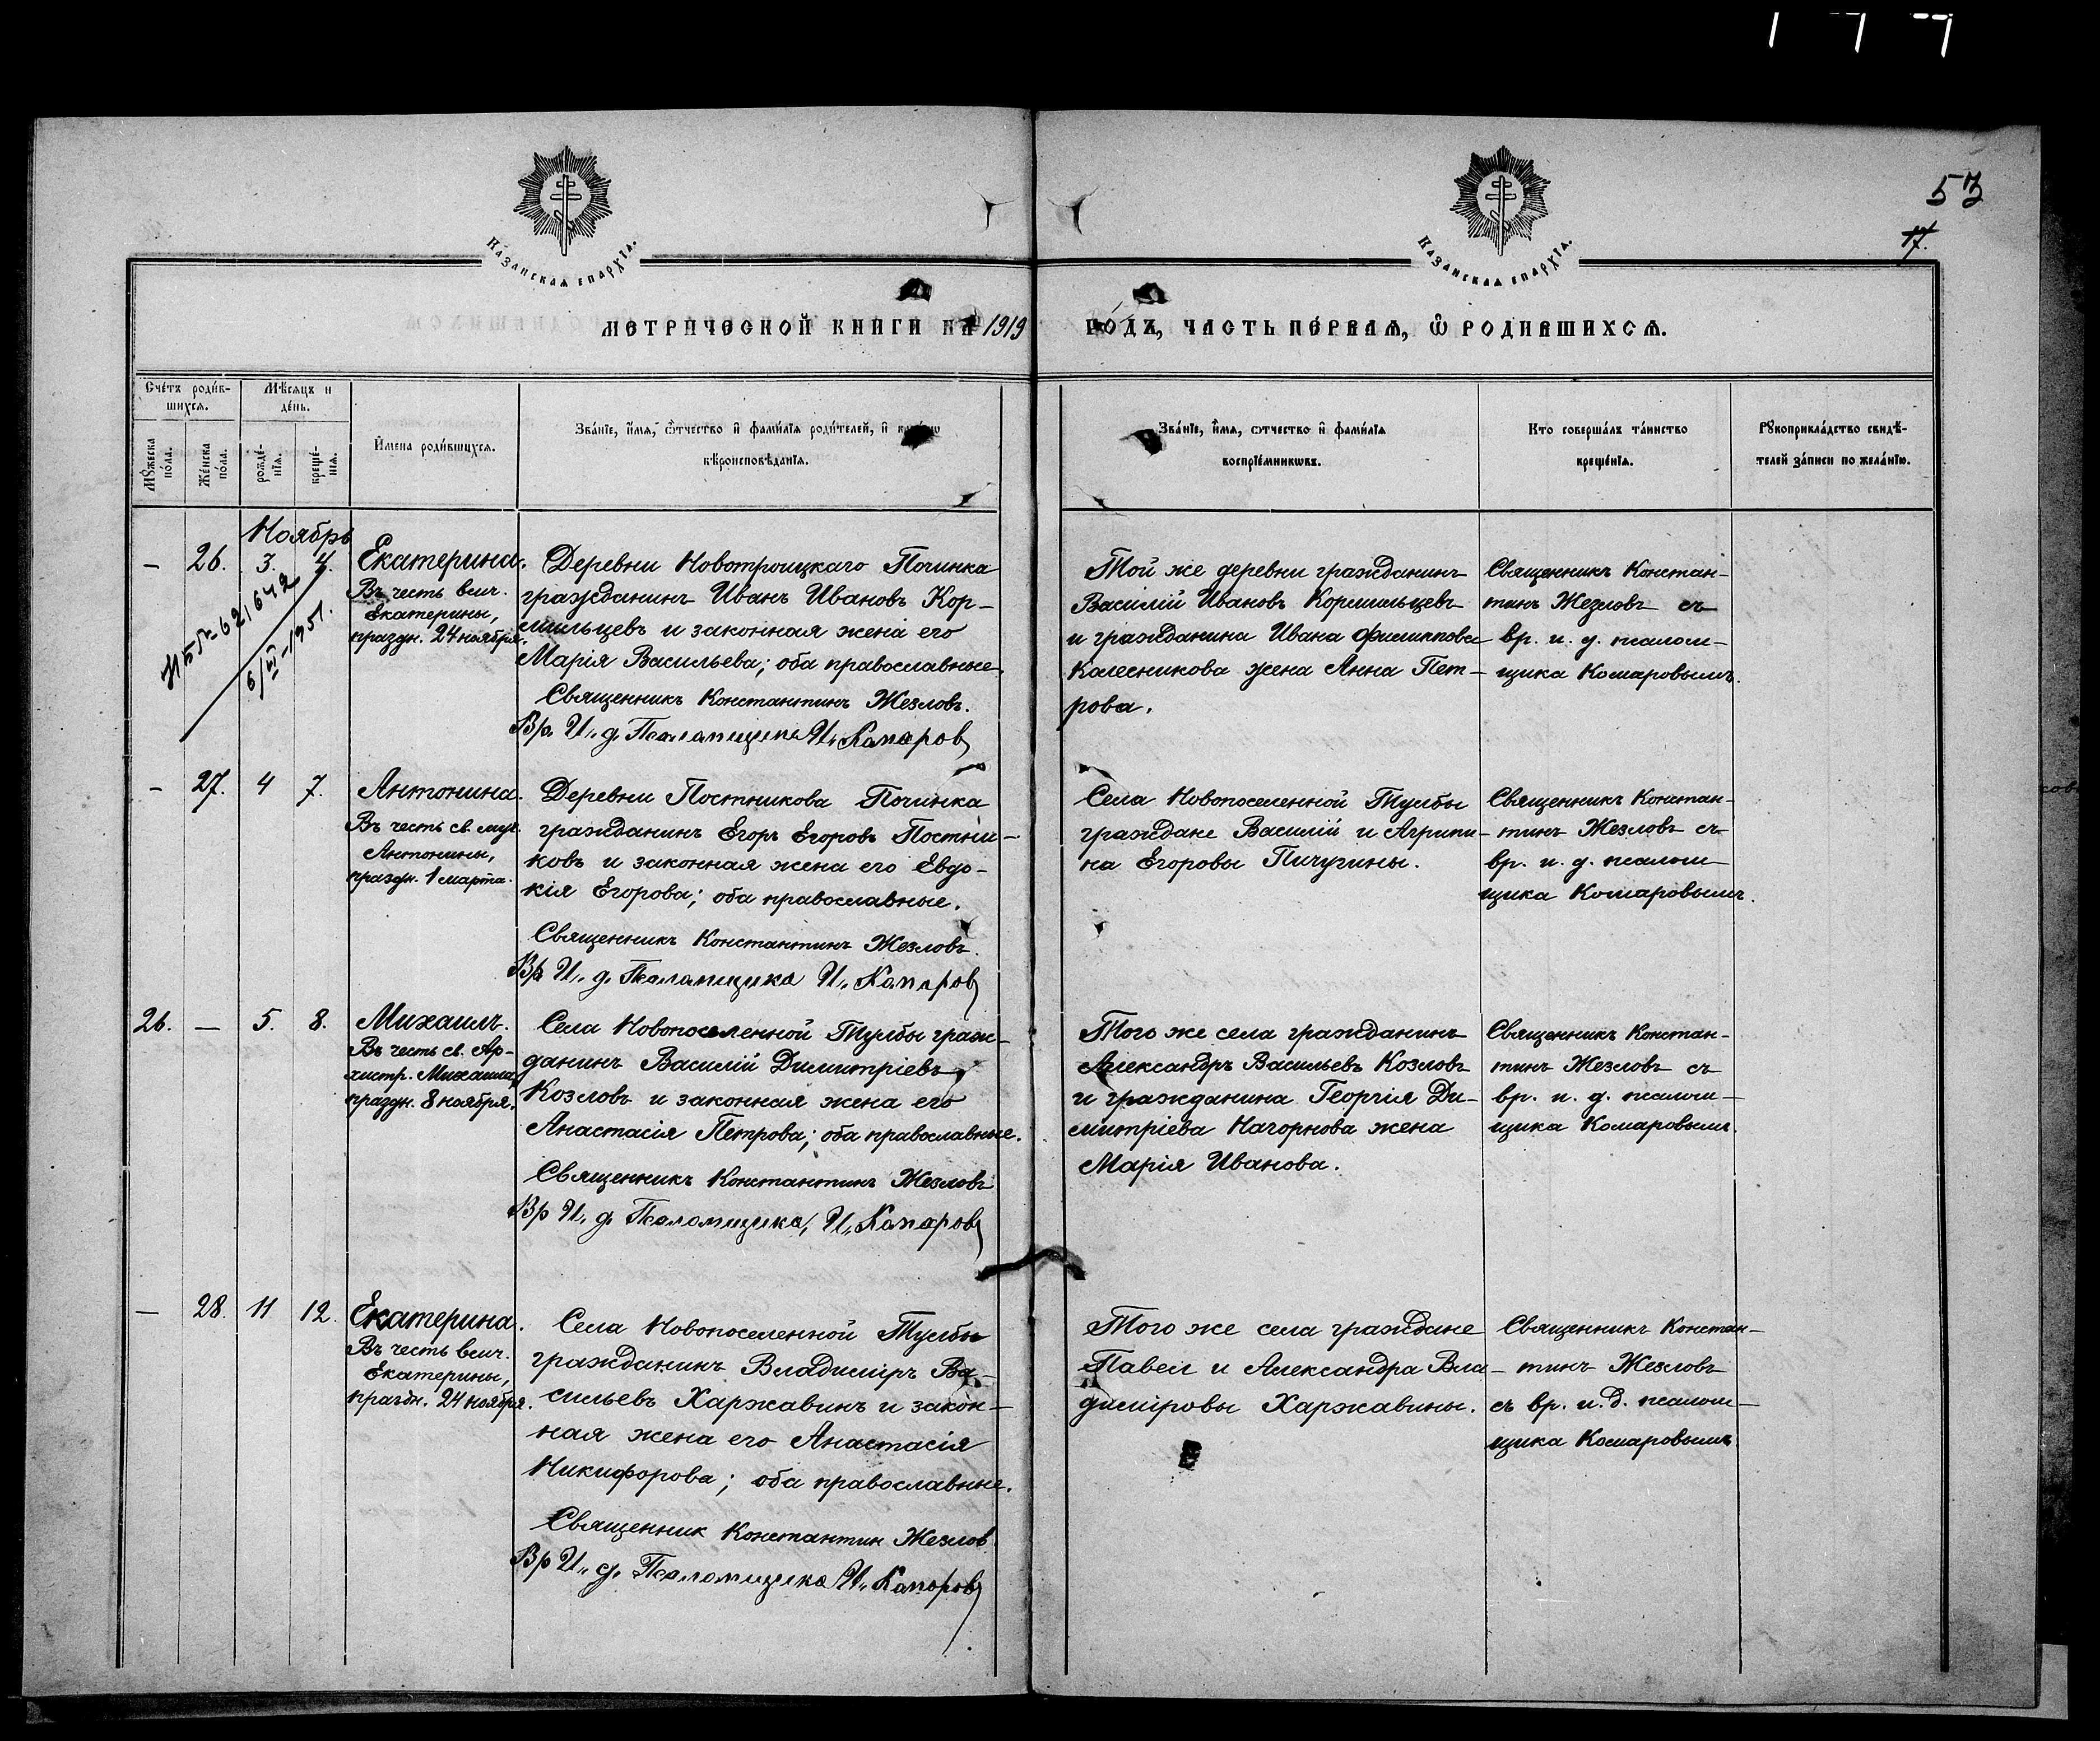 53
17.
Казанская епархія.
Казанская епархія.
Метрической книги на 1919
годъ, часть первая, ѿ родившихся.
Счетъ родив-
шихся.
Мѣсяцъ и
день.
Мꙋжеска
пола.
Женска
пола.
рожде-
нія.
креще-
нія.
Имена родившихся.
Званіе, имя, ѿтчество и фамилія родителей, и
вѣроисповѣданія.
Званіе, имя, ѿтчество и фамилія
воспріемниковъ.
Кто совершалъ таинство
крещенія.
Рꙋкоприкладство свидѣ-
телей записи по желанію.
Ноябрь
— 26. 3. 4.
6/VI-1951.
Екатерина.
Въ честь влмч.
Екатерины,
праздн. 24 ноября.
Деревни Новотроицкаго Починка
гражданинъ Иванъ Ивановъ Кор-
мильцевъ и законная жена его
Марія Васильева; оба православные.
Священникъ Константинъ Жезловъ.
Вр. И. д. Псаломщика И. Комаров
Той же деревни гражданинъ
Василій Ивановъ Кормильцевъ
и гражданина Ивана Филиппова
Колесникова жена Анна Пет-
рова.
Священникъ Констан-
тинъ Жезловъ съ
вр. и. д. псалом-
щика Комаровымъ.
— 27. 4 7.
Антонина.
Въ честь св. муч.
Антонины,
праздн. 1 марта.
Деревни Постникова Починка
гражданинъ Егоръ Егоровъ Постни-
ковъ и законная жена его Евдо-
кія Егорова; оба православные.
Священникъ Константинъ Жезловъ.
Вр И. д. Псаломщика И. Комаров
Села Новопоселенной Тулбы
граждане Василій и Агрипи-
на Егоровы Пичугины.
Священникъ Констан-
тинъ Жезловъ съ
вр. и. д. псалом-
щика Комаровымъ.
26. — 5. 8.
Михаилъ.
Въ честь св. Ар-
хистр. Михаила,
праздн. 8 ноября.
Села Новопоселенной Тулбы граж-
данинъ Василій Димитріевъ
Козловъ и законная жена его
Анастасія Петрова; оба православные.
Священникъ Константинъ Жезловъ
Вр И. д. Псаломщика, И. Комаров
Того же села гражданинъ
Александръ Васильевъ Козловъ
и гражданина Георгія Ди-
митріева Нагорнова жена
Марія Иванова.
Священникъ Констан-
тинъ Жезловъ съ
вр. и. д. псалом-
щика Комаровымъ.
— 28. 11 12.
Екатерина.
Въ честь влмч.
Екатерины,
праздн. 24 ноября.
Села Новопоселенной Тулбы
гражданинъ Владиміръ Ва-
сильевъ Харжавинъ и закон-
ная жена его Анастасія
Никифорова; оба православные.
Священник Константин Жезлов.
Вр И. д. Псаломщика И. Комаров
Того же села граждане
Павелъ и Александра Вла-
диміровы Харжавины.
Священникъ Констан-
тинъ Жезловъ
съ вр. и. д. псалом-
щика Комаровымъ.